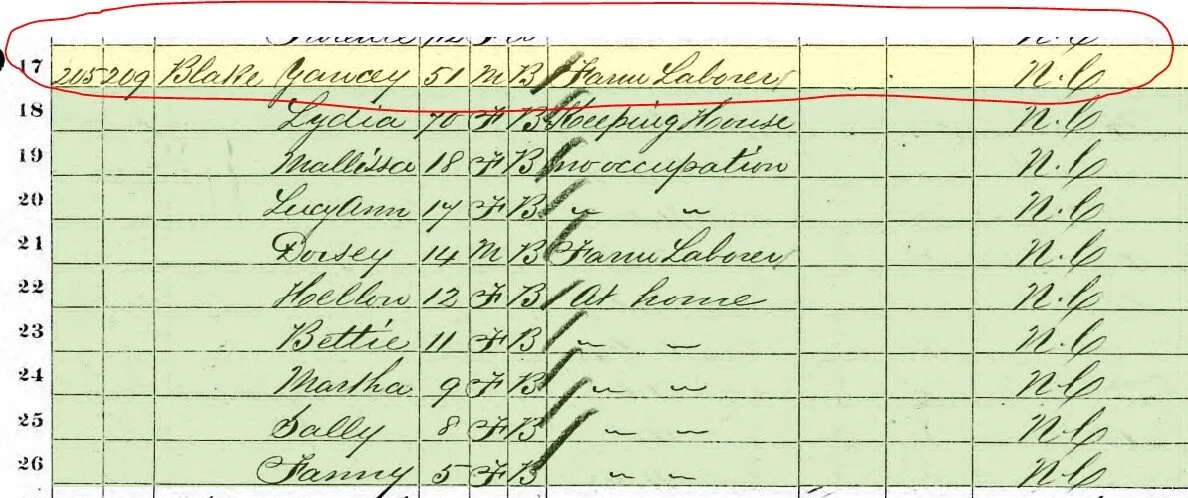 17 205 209 Blake Yancey 51 M B Farm Laborer N.C
18 Lydia 70 F B Keeping House N.C
19 Mallissa 18 F B no occupation N.C
20 Lucy Ann 17 F B " " N.C
21 Dorsey 14 M B Farm Laborer N.C
22 Hellon 12 F B At home N.C
23 Bettie 11 F B " " N.C
24 Martha 9 F B " " N.C
25 Sally 8 F B " " N.C
26 Fanny 5 F B " " N.C